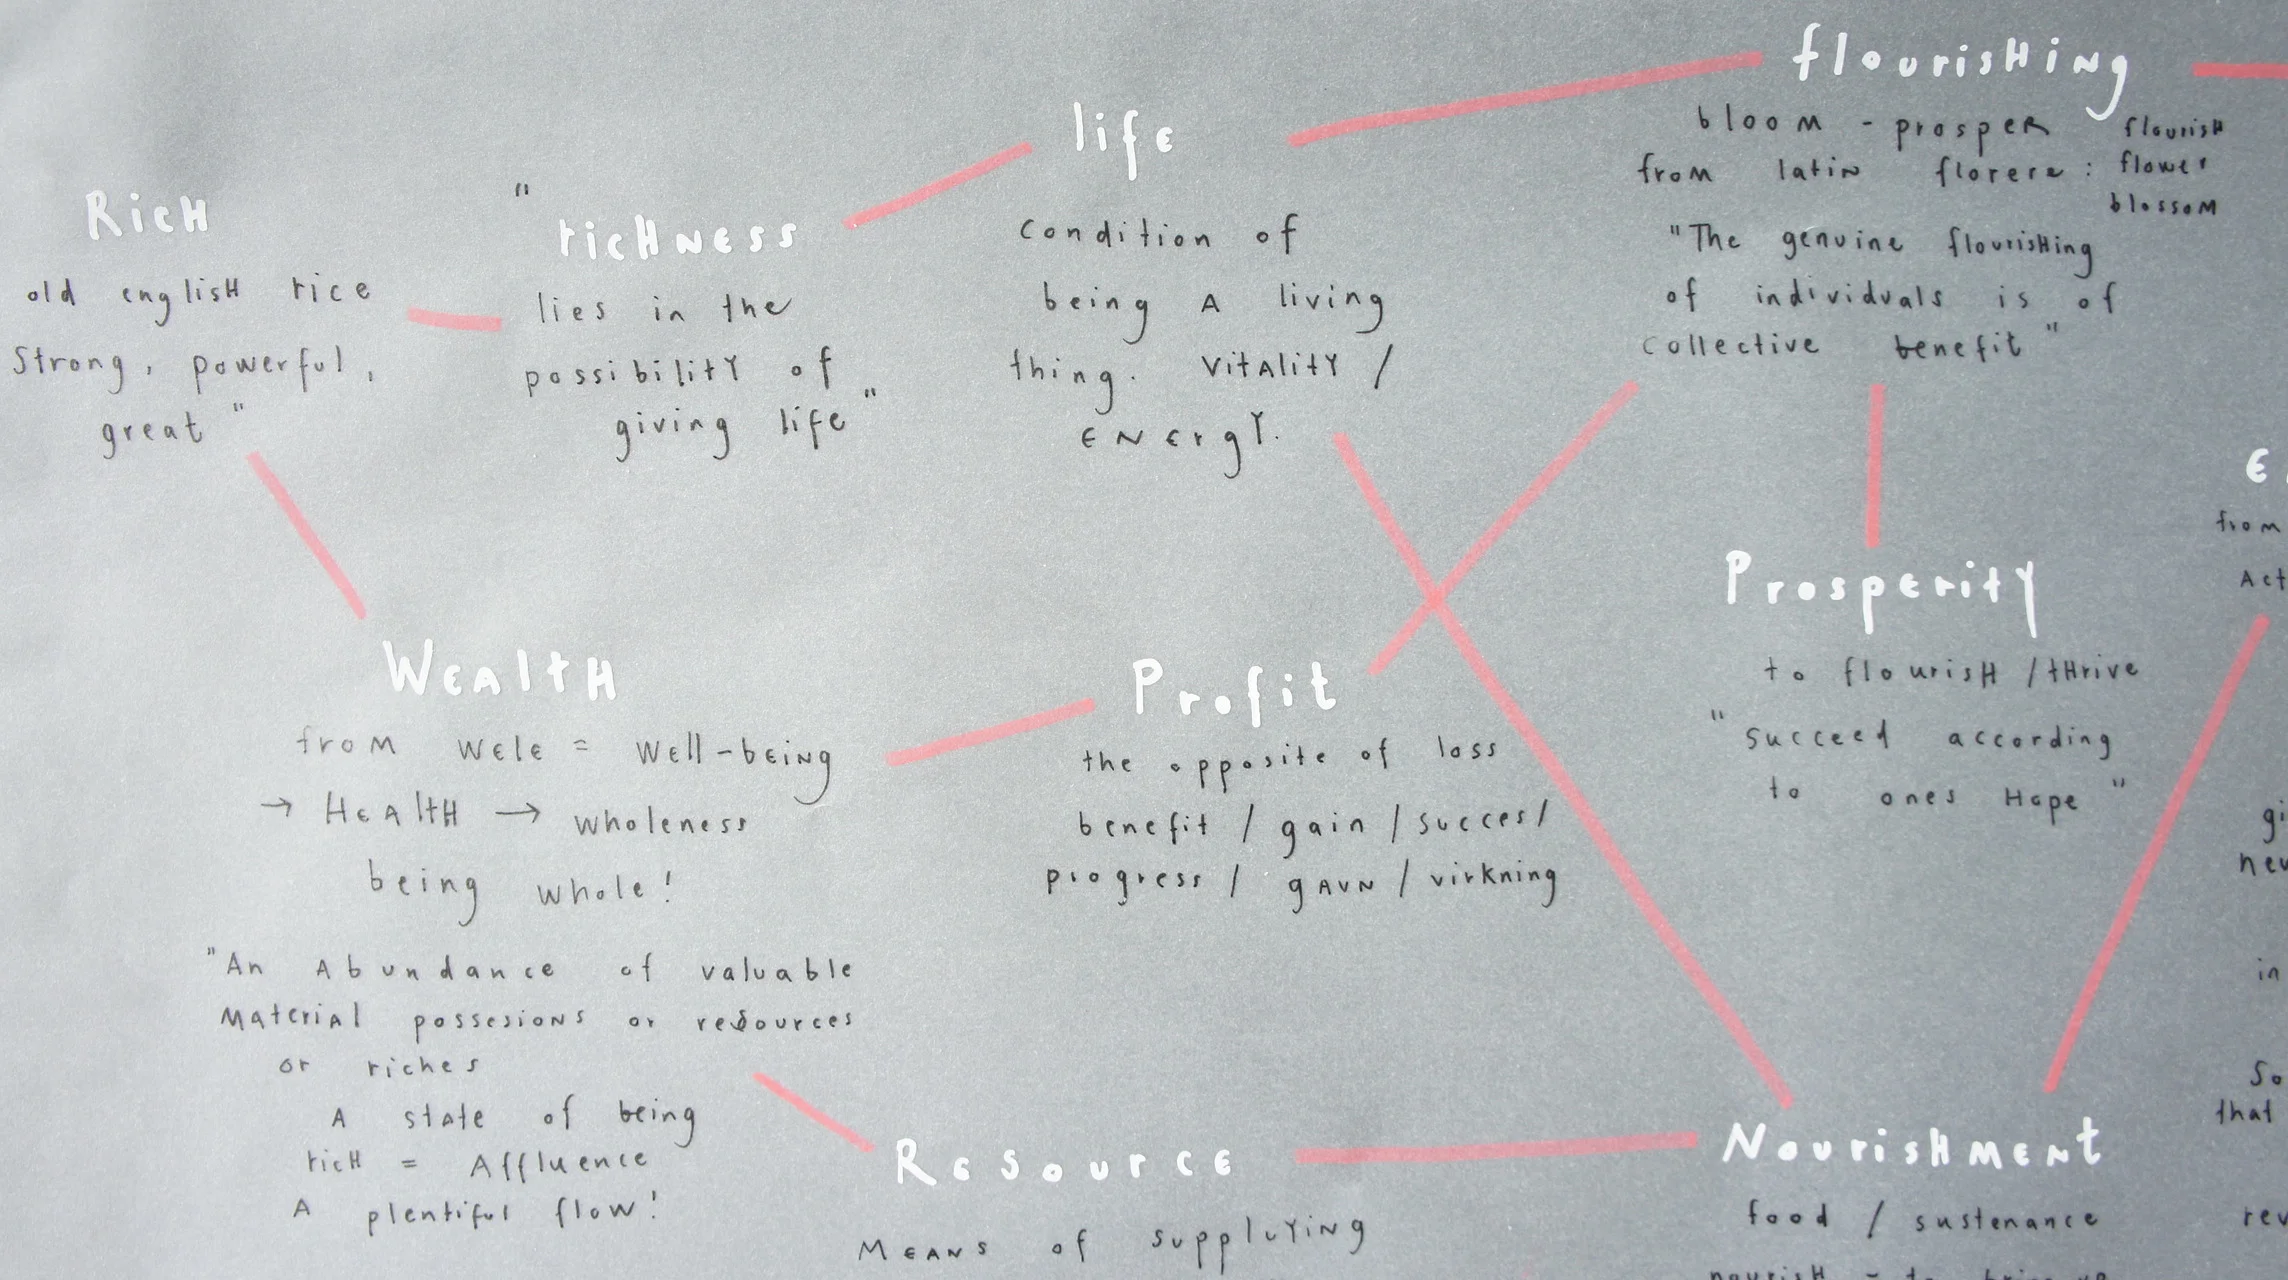 Rich
old english rice
Strong, powerful,
great "
" richness
lies in the
possibility of
giving life "
life
condition of
being a living
thing. Vitality /
energy.
flourishing
bloom - prosper
from latin florere :
flourish
flower
blossom
"The genuine flourishing
of individuals is of
collective benefit "
Wealth
from wele = well-being
→ Health → wholeness
being whole!
"An Abundance of valuable
Material possesions or resources
or riches
A state of being
rich = Affluence
A plentiful flow!
Profit
the opposite of loss
benefit / gain / succes/
progress / gavn / virkning
Prosperity
to flourish / thrive
" succeed according
to ones Hope "
Resource
Means of supplying
Nourishment
food / sustenance
nourish - to bring up
from
Act
gi
new
in
So
that
rev